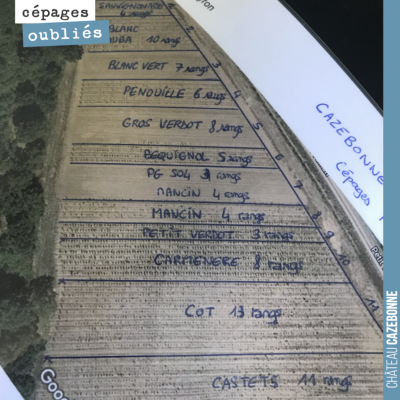 cépages
oubliés
SAUVIGNONASSE
6 rangs
BLANC
AUBA 10 rangs
2
BLANC VERT 7 rangs
3
PENOUILLE 6 rangs
4
GROS VERDOT 8 rangs
5
BEQUIGNOL 5 rangs
6
PG 504 3 rangs
7
MANCIN 4 rangs
MANCIN 4 rangs
8
PETIT VERDOT 3 rangs
9
CARMENERE 8 rangs
10
COT 13 rangs
11
CASTETS 11 rangs
CAZEBONNE
Cépages
Goo
CHÂTEAU CAZEBONNE